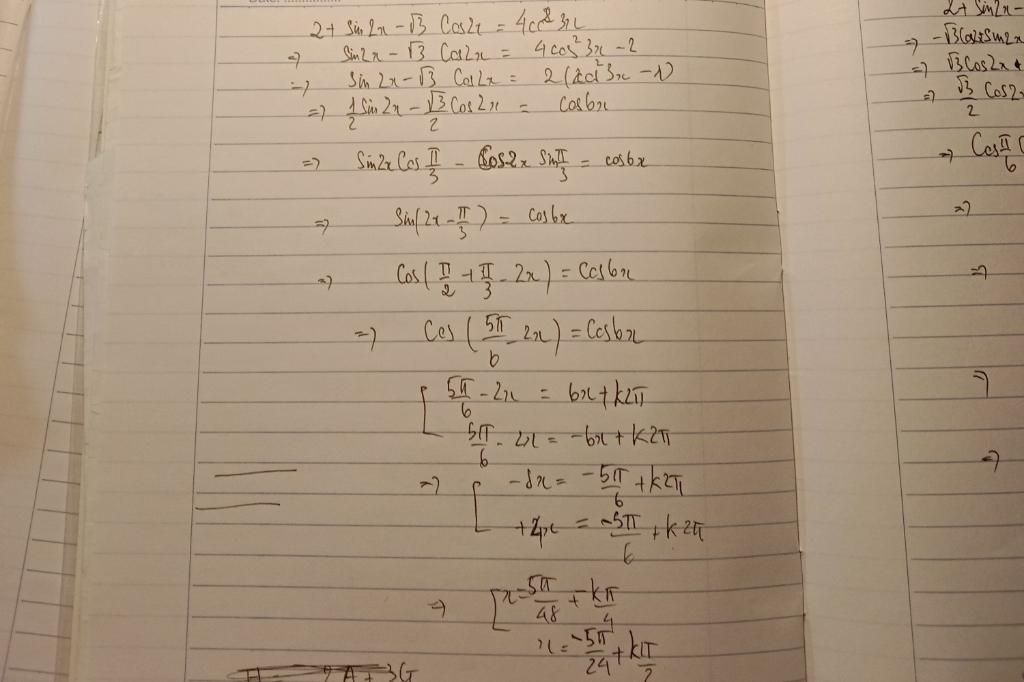 2 + Sin2x - √3 Cos2x = 4cos²3x
=> Sin2x - √3 Cos2x = 4cos²3x - 2
=> Sin2x - √3 Cos2x = 2(2cos²3x - 1)
=> 1/2 Sin2x - √3/2 Cos2x = cos6x
=> Sin2x Cos π/3 - Cos2x Sin π/3 = cos6x
=> Sin(2x - π/3) = cos6x
=> Cos(π/2 + π/3 - 2x) = Cos6x
=> Cos(5π/6 - 2x) = Cos6x
[ 5π/6 - 2x = 6x + k2π
5π/6 - 2x = -6x + k2π
=> [ -8x = -5π/6 + k2π
+4x = -5π/6 + k2π
=> [ x = 5π/48 + kπ/4
x = -5π/24 + kπ/2
2 + Sin2x -
=> -√3Cos2x + Sin2x
=> √3 Cos2x
=> √3/2 Cos2x
=> Cos π/6 (
=>
=>
=>
=>